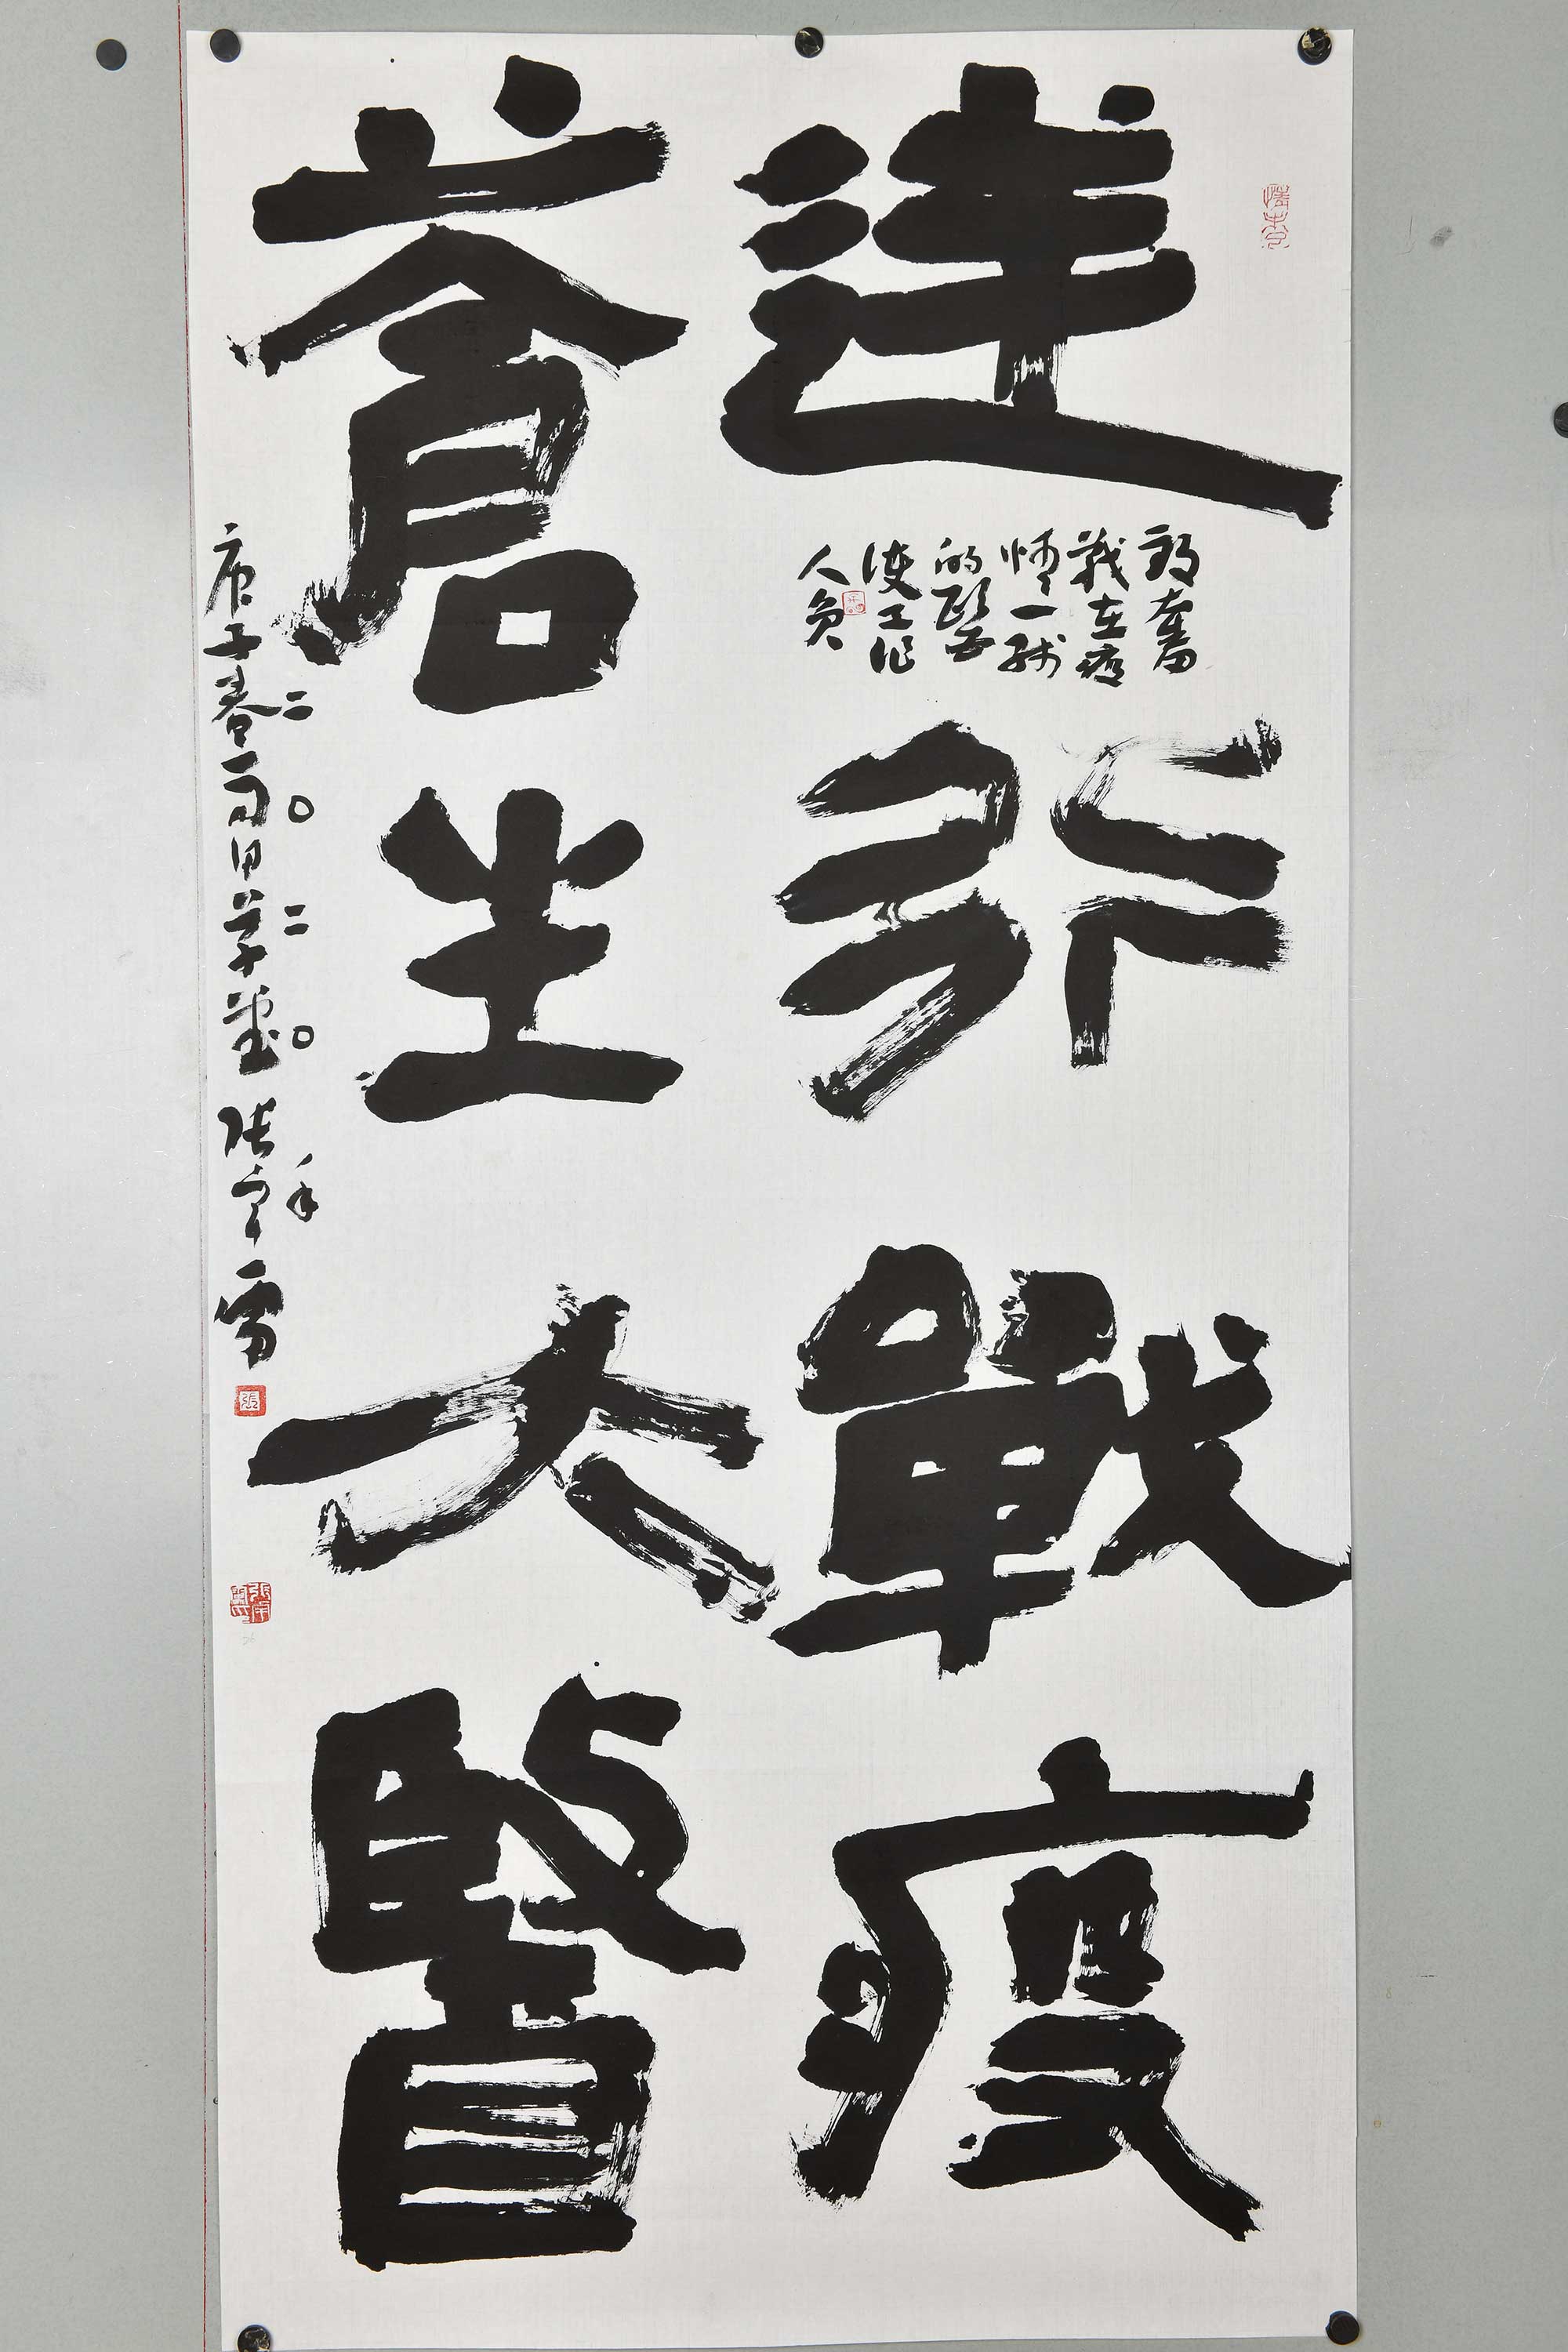 逆行戰疫
致奮
戰在疫
情一线
的醫
護工作
人員
蒼生大醫
二〇二〇年
庚子春
張